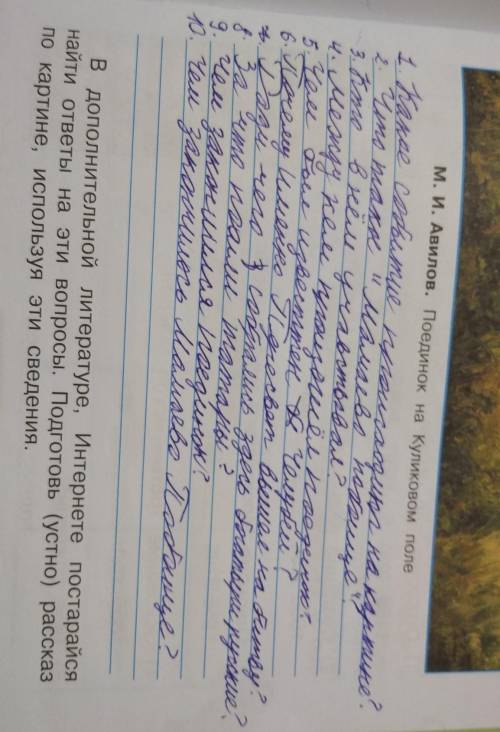 М. И. Авилов. Поединок на Куликовом поле
1. Какое событие происходит на картине?
2. Что такое "Мамаево побоище"?
3. Кто в нём участвовал?
4. Между кем произошёл поединок?
5. Чем был известен Челубей?
6. Почему именно Пересвет вышел на битву?
7. Для чего собрались здесь богатыри русские?
8. За что пошли татары?
9. Чем закончился поединок?
10. Чем закончилось Мамаево Побоище?
В дополнительной литературе, Интернете постарайся
найти ответы на эти вопросы. Подготовь (устно) рассказ
по картине, используя эти сведения.